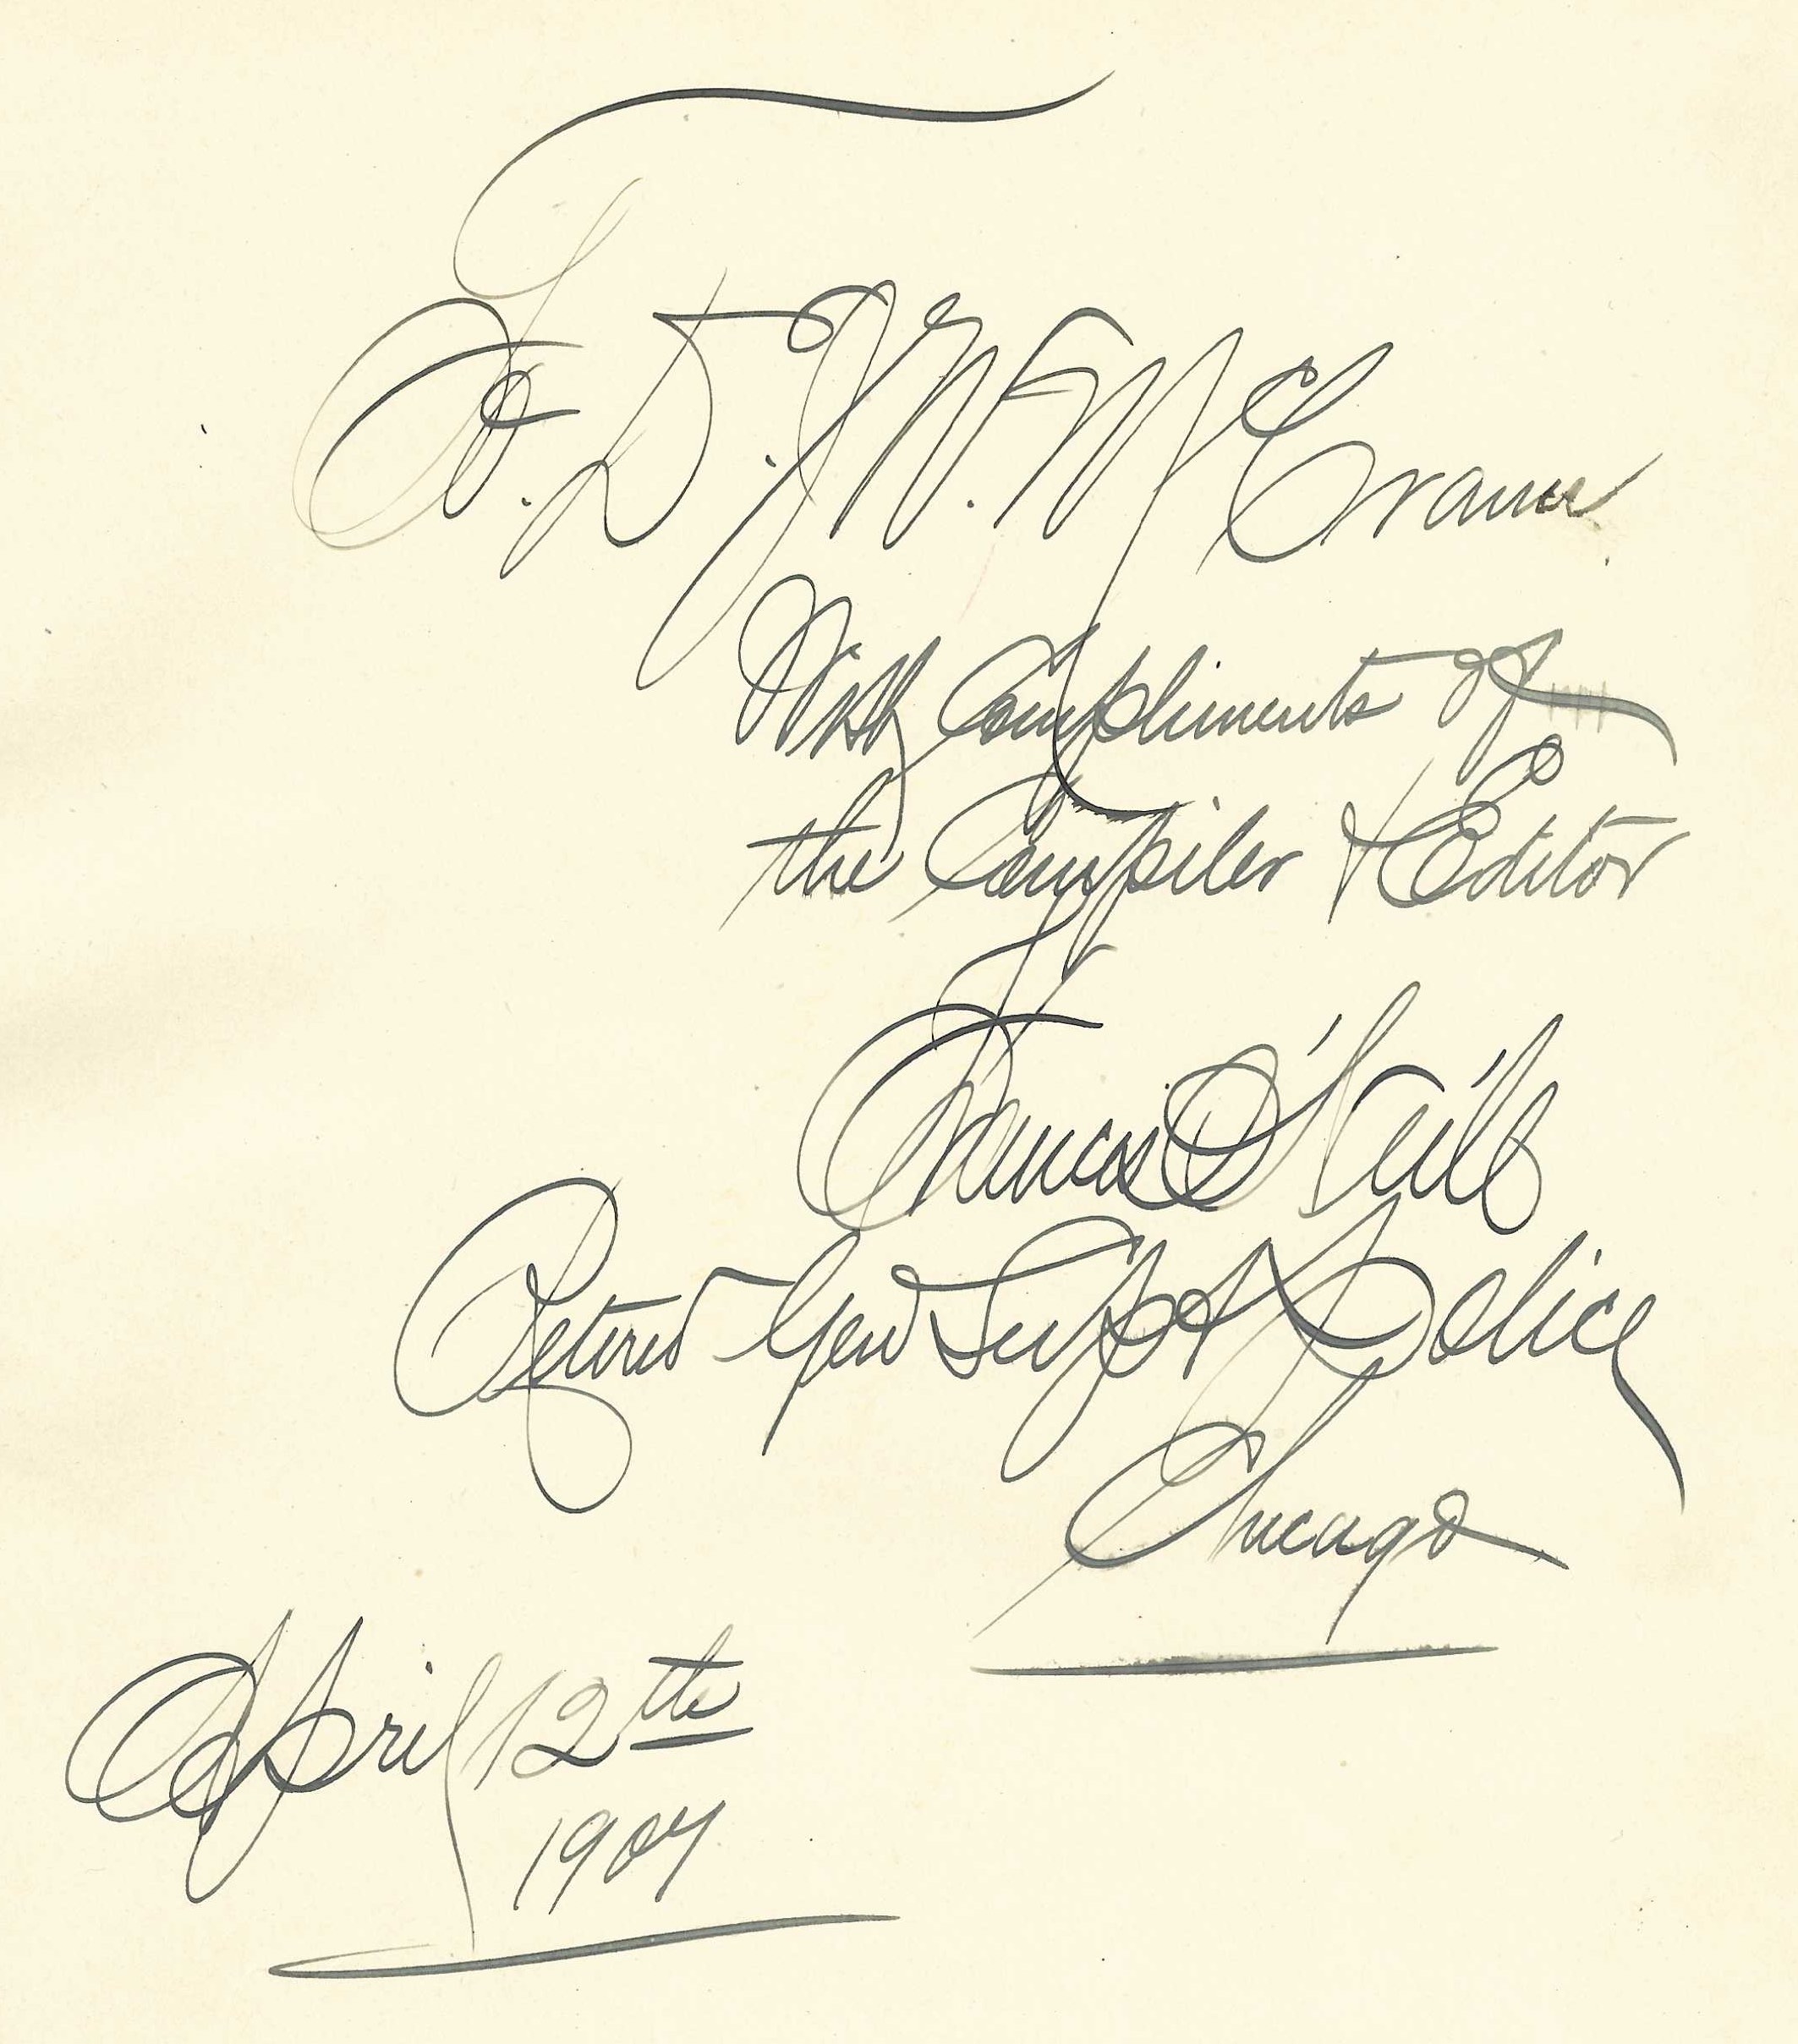 With Compliments of
the Compiler & Editor
Francis O'Neill
Retired Gen Supt Police
Chicago
April 12th
1907